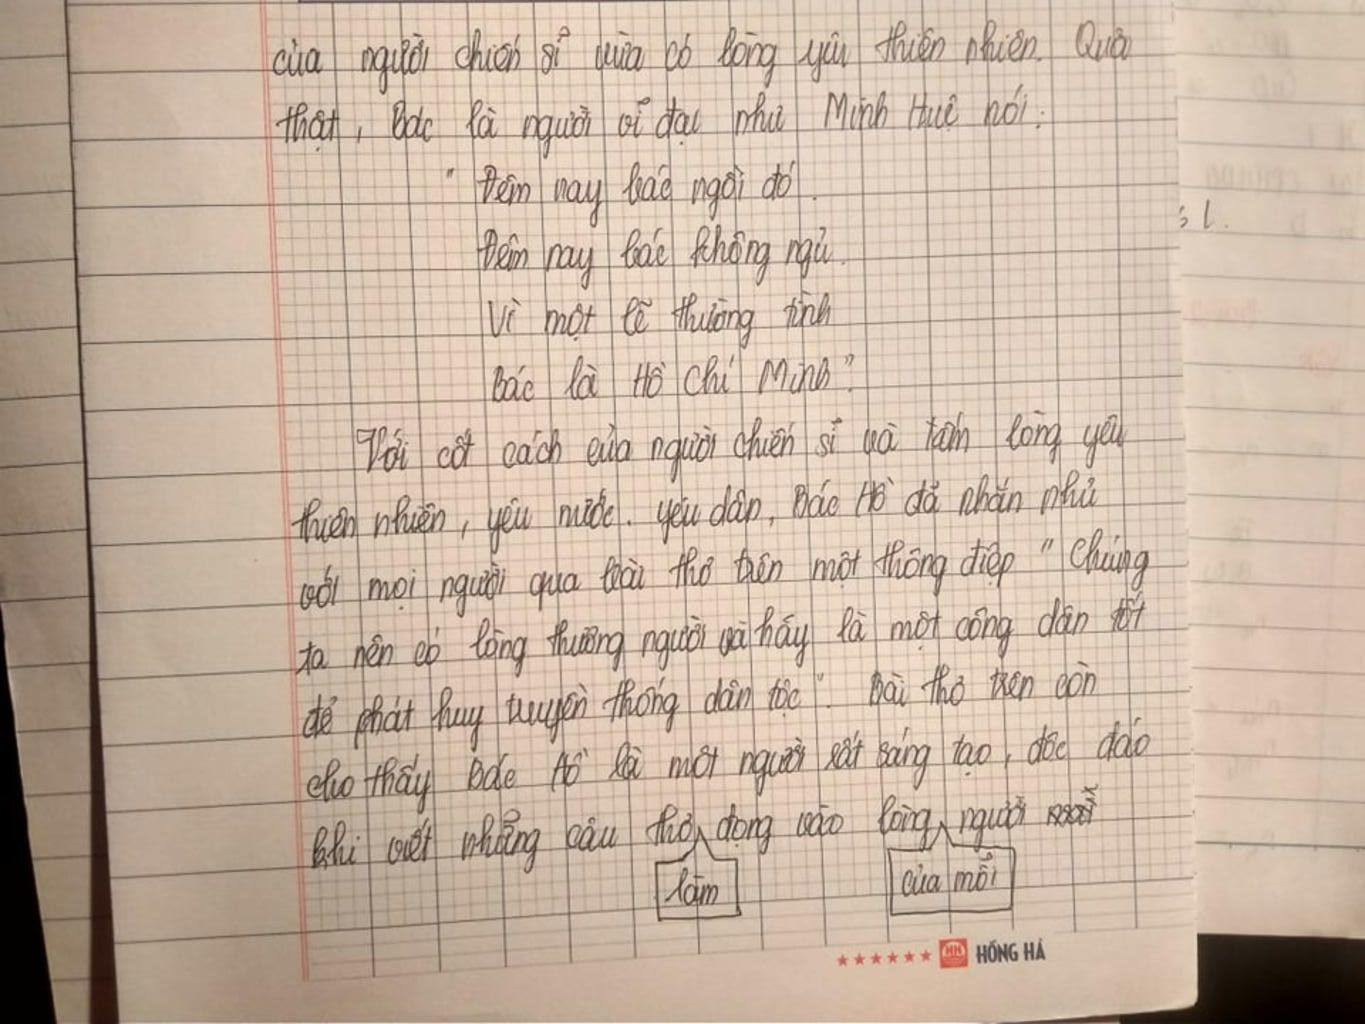 của người chiến sĩ vừa có lòng yêu thiên nhiên. Quả
thật, Bác là người vĩ đại như Minh Huệ nói:
" Đêm nay bác ngồi đó
Đêm nay bác không ngủ
Vì một lẽ thường tình
Bác là Hồ Chí Minh".
Với cốt cách của người chiến sĩ và tấm lòng yêu
thiên nhiên, yêu nước. yêu dân, Bác Hồ đã nhắn nhủ
với mọi người qua bài thơ trên một thông điệp " Chúng
ta nên có lòng thương người và hãy là một công dân tốt
để phát huy truyền thống dân tộc". Bài thơ trên còn
cho thấy Bác Hồ là một người rất sáng tạo, độc đáo
khi viết những câu thơ làm động vào lòng của mỗi người
HỒNG HÀ